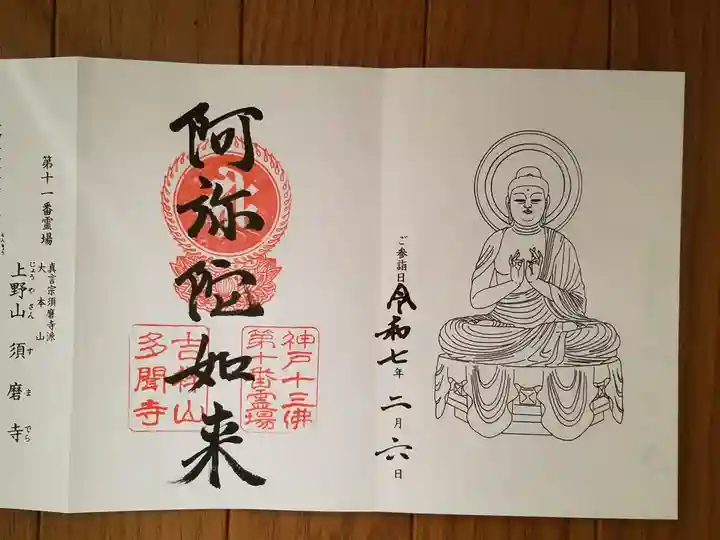 ご参詣日 令和七年 二月六日
阿弥陀如来
神戸十三佛
第十番霊場
多聞寺
第十一番霊場
真言宗須磨寺派
大本山
上野山 須磨寺
じょうやさん すまでら